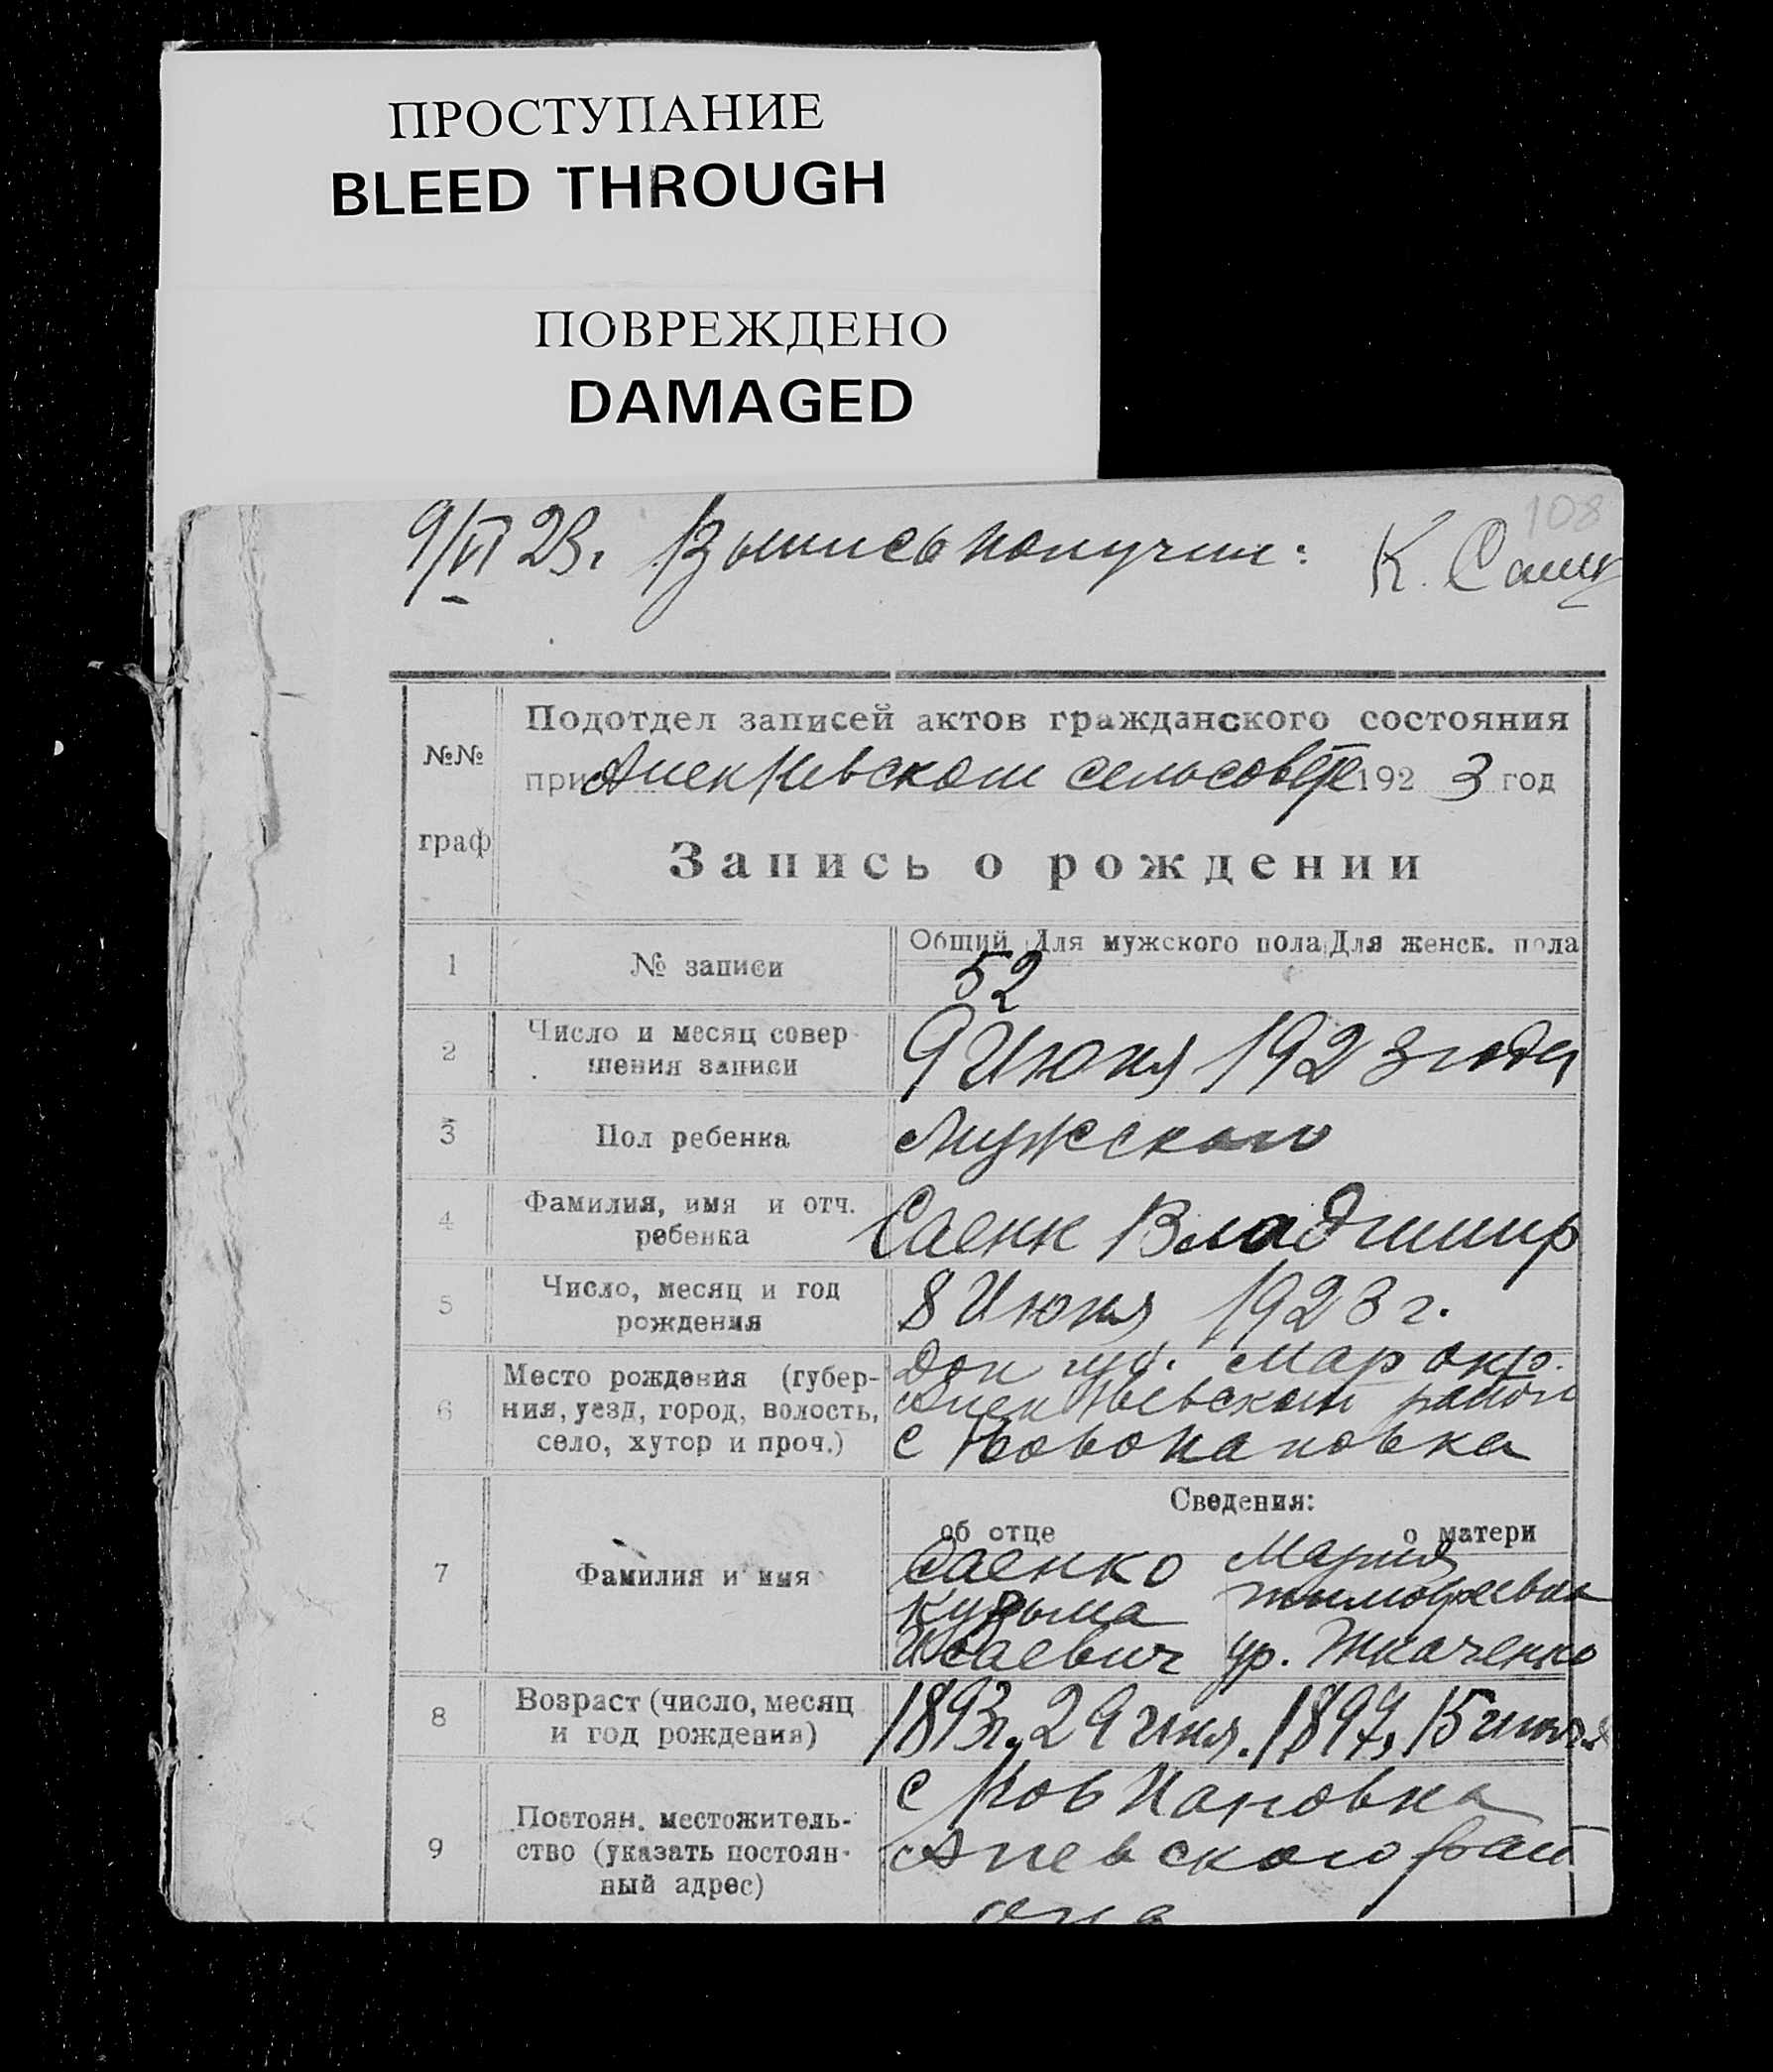 ПРОСТУПАНИЕ
BLEED THROUGH
ПОВРЕЖДЕНО
DAMAGED
108
9/VI 23г. Выпись получил: К.
№№
граф
Подотдел записей актов гражданского состояния
при сельсовете 1923 год
Запись о рождении
Общий Для мужского пола Для женск. пола
1 № записи 52
2 Число и месяц совер-
шения записи
9 Июня 1923 года
3 Пол ребенка Мужского
4 Фамилия, имя и отч.
ребенка
Саенк Владимир
5 Число, месяц и год
рождения
8 Июня 1923 г.
6 Место рождения (губер-
ния, уезд, город, волость,
село, хутор и проч.)
Дон губ. Мар окр.
район
с
Сведения:
об отце о матери
7 Фамилия и имя
Саенко Мария
Кузьма Тимофеевна
Исаевич ур. Ткаченко
8 Возраст (число, месяц
и год рождения)
1893г. 29 1897, 15
9 Постоян. местожитель-
ство (указать постоян-
ный адрес)
с Нов
рай
она